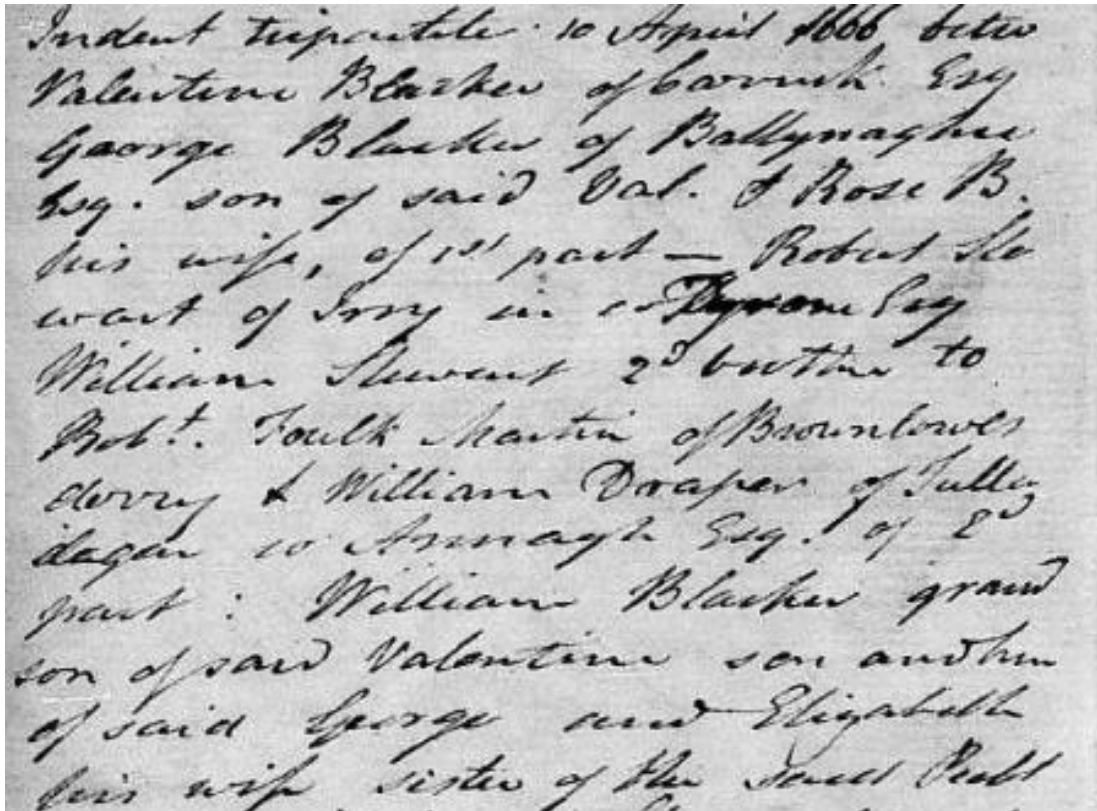 Indent tripartite 10 April 1666 betw
Valentine Blacker of Carrick Esq
George Blacker of Ballynaghee
Esq. son of said Val. & Rose B.
his wife, of 1st part — Robert Ste
wart of Irry in co Tyrone Esq
William Stewart 2d brother to
Robt. Foulk Martin of Brownlowes
derry & William Draper of Tully
dagan co Armagh Esq. of 2d
part : William Blacker grand
son of said Valentine son and heir
of said George and Elizabeth
his wife sister of the said Robt